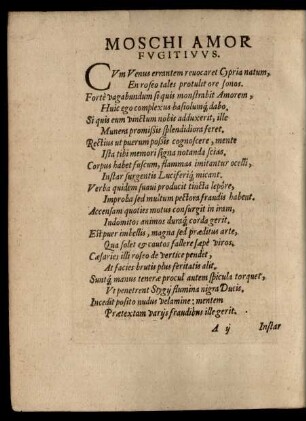 MOSCHI AMOR
FVGITIVVS.
CVm Venus errantem reuocaret Cypria natum,
En roseo tales protulit ore sonos.
Fortè vagabundum si quis monstrabit Amorem,
Huic ego complexus basiolumq́; dabo,
Si quis eum vinctum nobis adduxerit, ille
Muneri promissis splendidiora feret,
Rectius ut puerum possit cognoscere, mente
Ista tibi memori signa notanda scias,
Corpus habet fuscum, flammas imitantur ocelli,
Instar surgentis Luciferiq́; micant.
Verba quidem suaui producit tincta lepôre,
Improba sed multum pectora fraudis habent.
Accensam quoties motus consurgit in iram,
Indomitos animos duraq́; corda gerit.
Est puer imbellis, magna sed præditus arte,
Qua solet & cautos fallere sæpè viros,
Cæsaries illi roseo de vertice pendet,
At facies brutis plus feritatis alit.
Suntq́; manus teneræ procul autem spicula torquet,
Vt penetrent Stygij flumina nigra Ducis.
Incedit posito nudus velamine: mentem
Prætextam varijs fraudibus ille gerit.
A ij
Instar